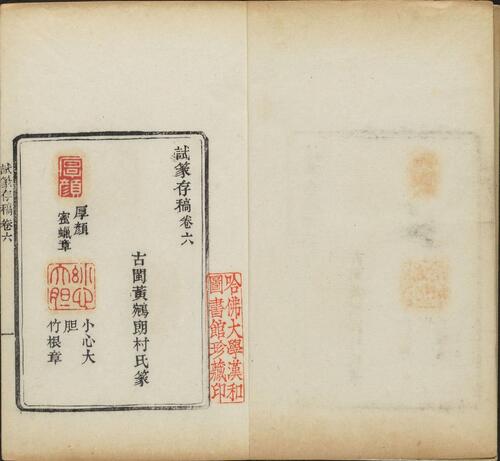 哈佛大學漢和
圖書館珍藏印
試篆存稿卷六
古閩黃鵷朗村氏篆
厚顏
厚顏
蜜蠟章
小心
大胆
小心大
胆
竹根章
試篆存稿 卷六